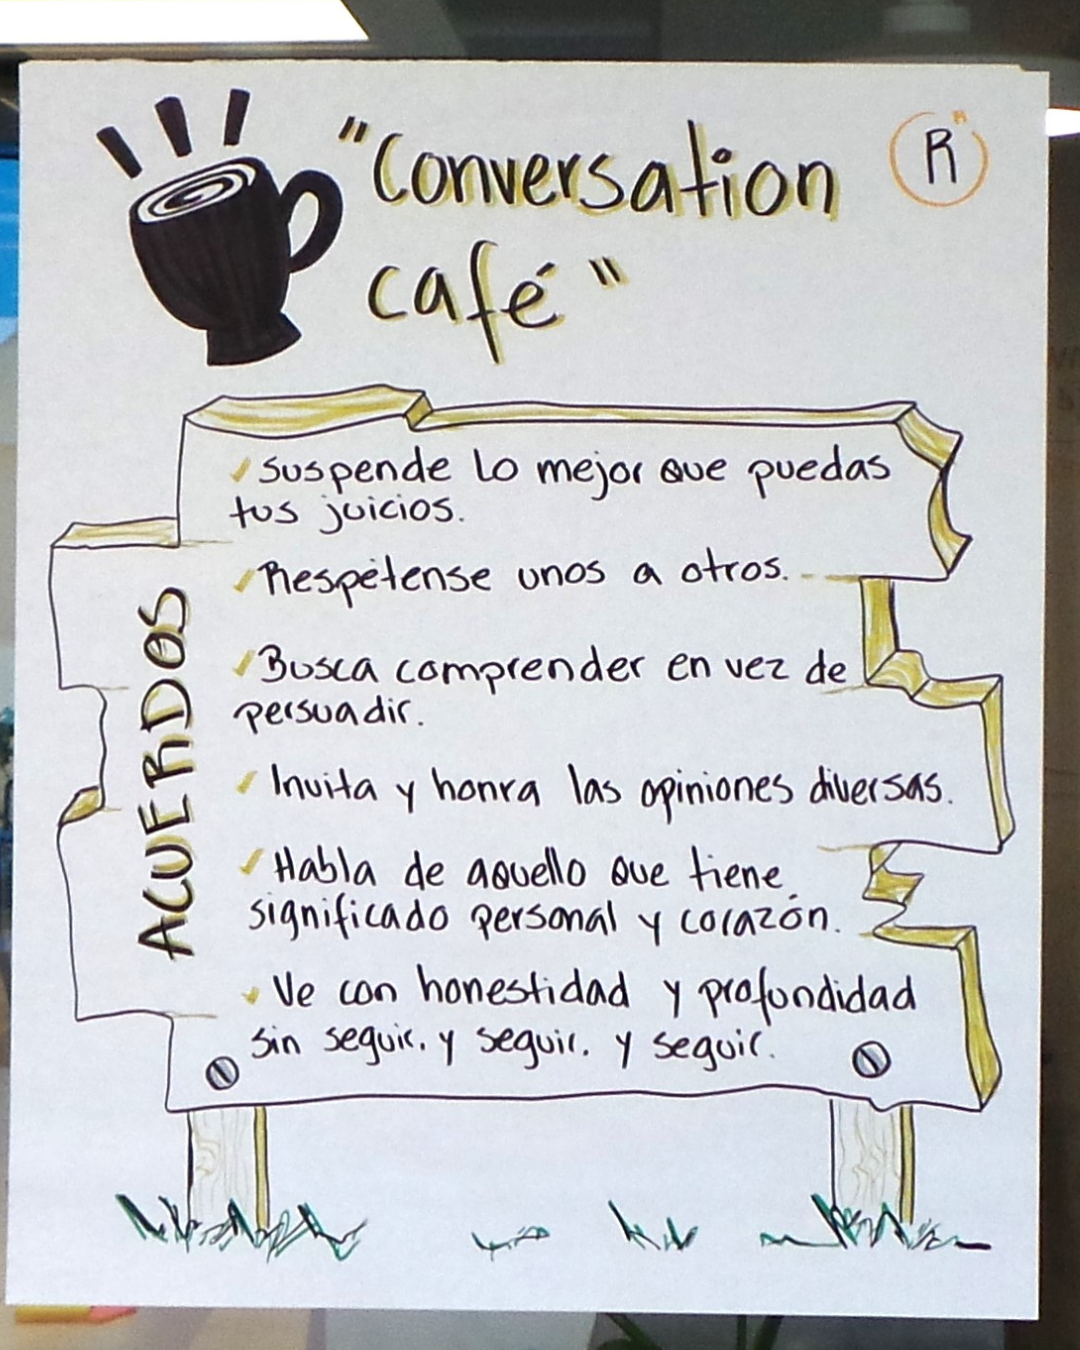 "Conversation
café"
R
R
ACUERDOS
✓ Suspende lo mejor que puedas
tus juicios.
✓ Respétense unos a otros.
✓ Busca comprender en vez de
persuadir.
✓ Invita y honra las opiniones diversas.
✓ Habla de aquello que tiene
significado personal y corazón.
✓ Ve con honestidad y profundidad
sin seguir. y seguir. y seguir.